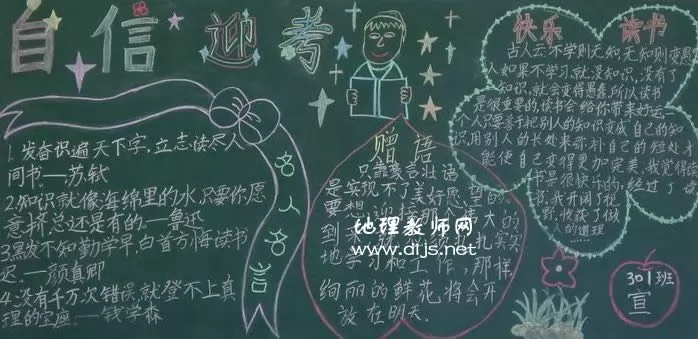 自信迎考
1.发奋识遍天下字,立志读尽人
间书.——苏轼
2.知识就像海绵里的水,只要你愿
意挤总还是有的.——鲁迅
3.黑发不知勤学早,白首方悔读书
迟.——颜真卿
4.没有千万次错误,就登不上真
理的宝座.——钱学森
名人名言
赠语
只靠豪言壮语
是实现不了美好愿望的。
要想
到
扎扎实实
地学习和工作,那样,
绚丽的鲜花将会开
放在明天.
快乐读书
古人云不学则无知,无知则变愚
人如果不学习,就没知识,没有了
知识,就会变得愚蠢,所以读书
是很重要的读书会给你带来好运一
个人只要善于把别人的知识变成自己的知
识,用别人的长处来弥补自己的短处才
能使自己变得更加完美,我觉得读
书是很快乐的,经过了
书,我开阔了视
野,收获了做
人的道理
301班
宣
地理教师网
www.dljs.net